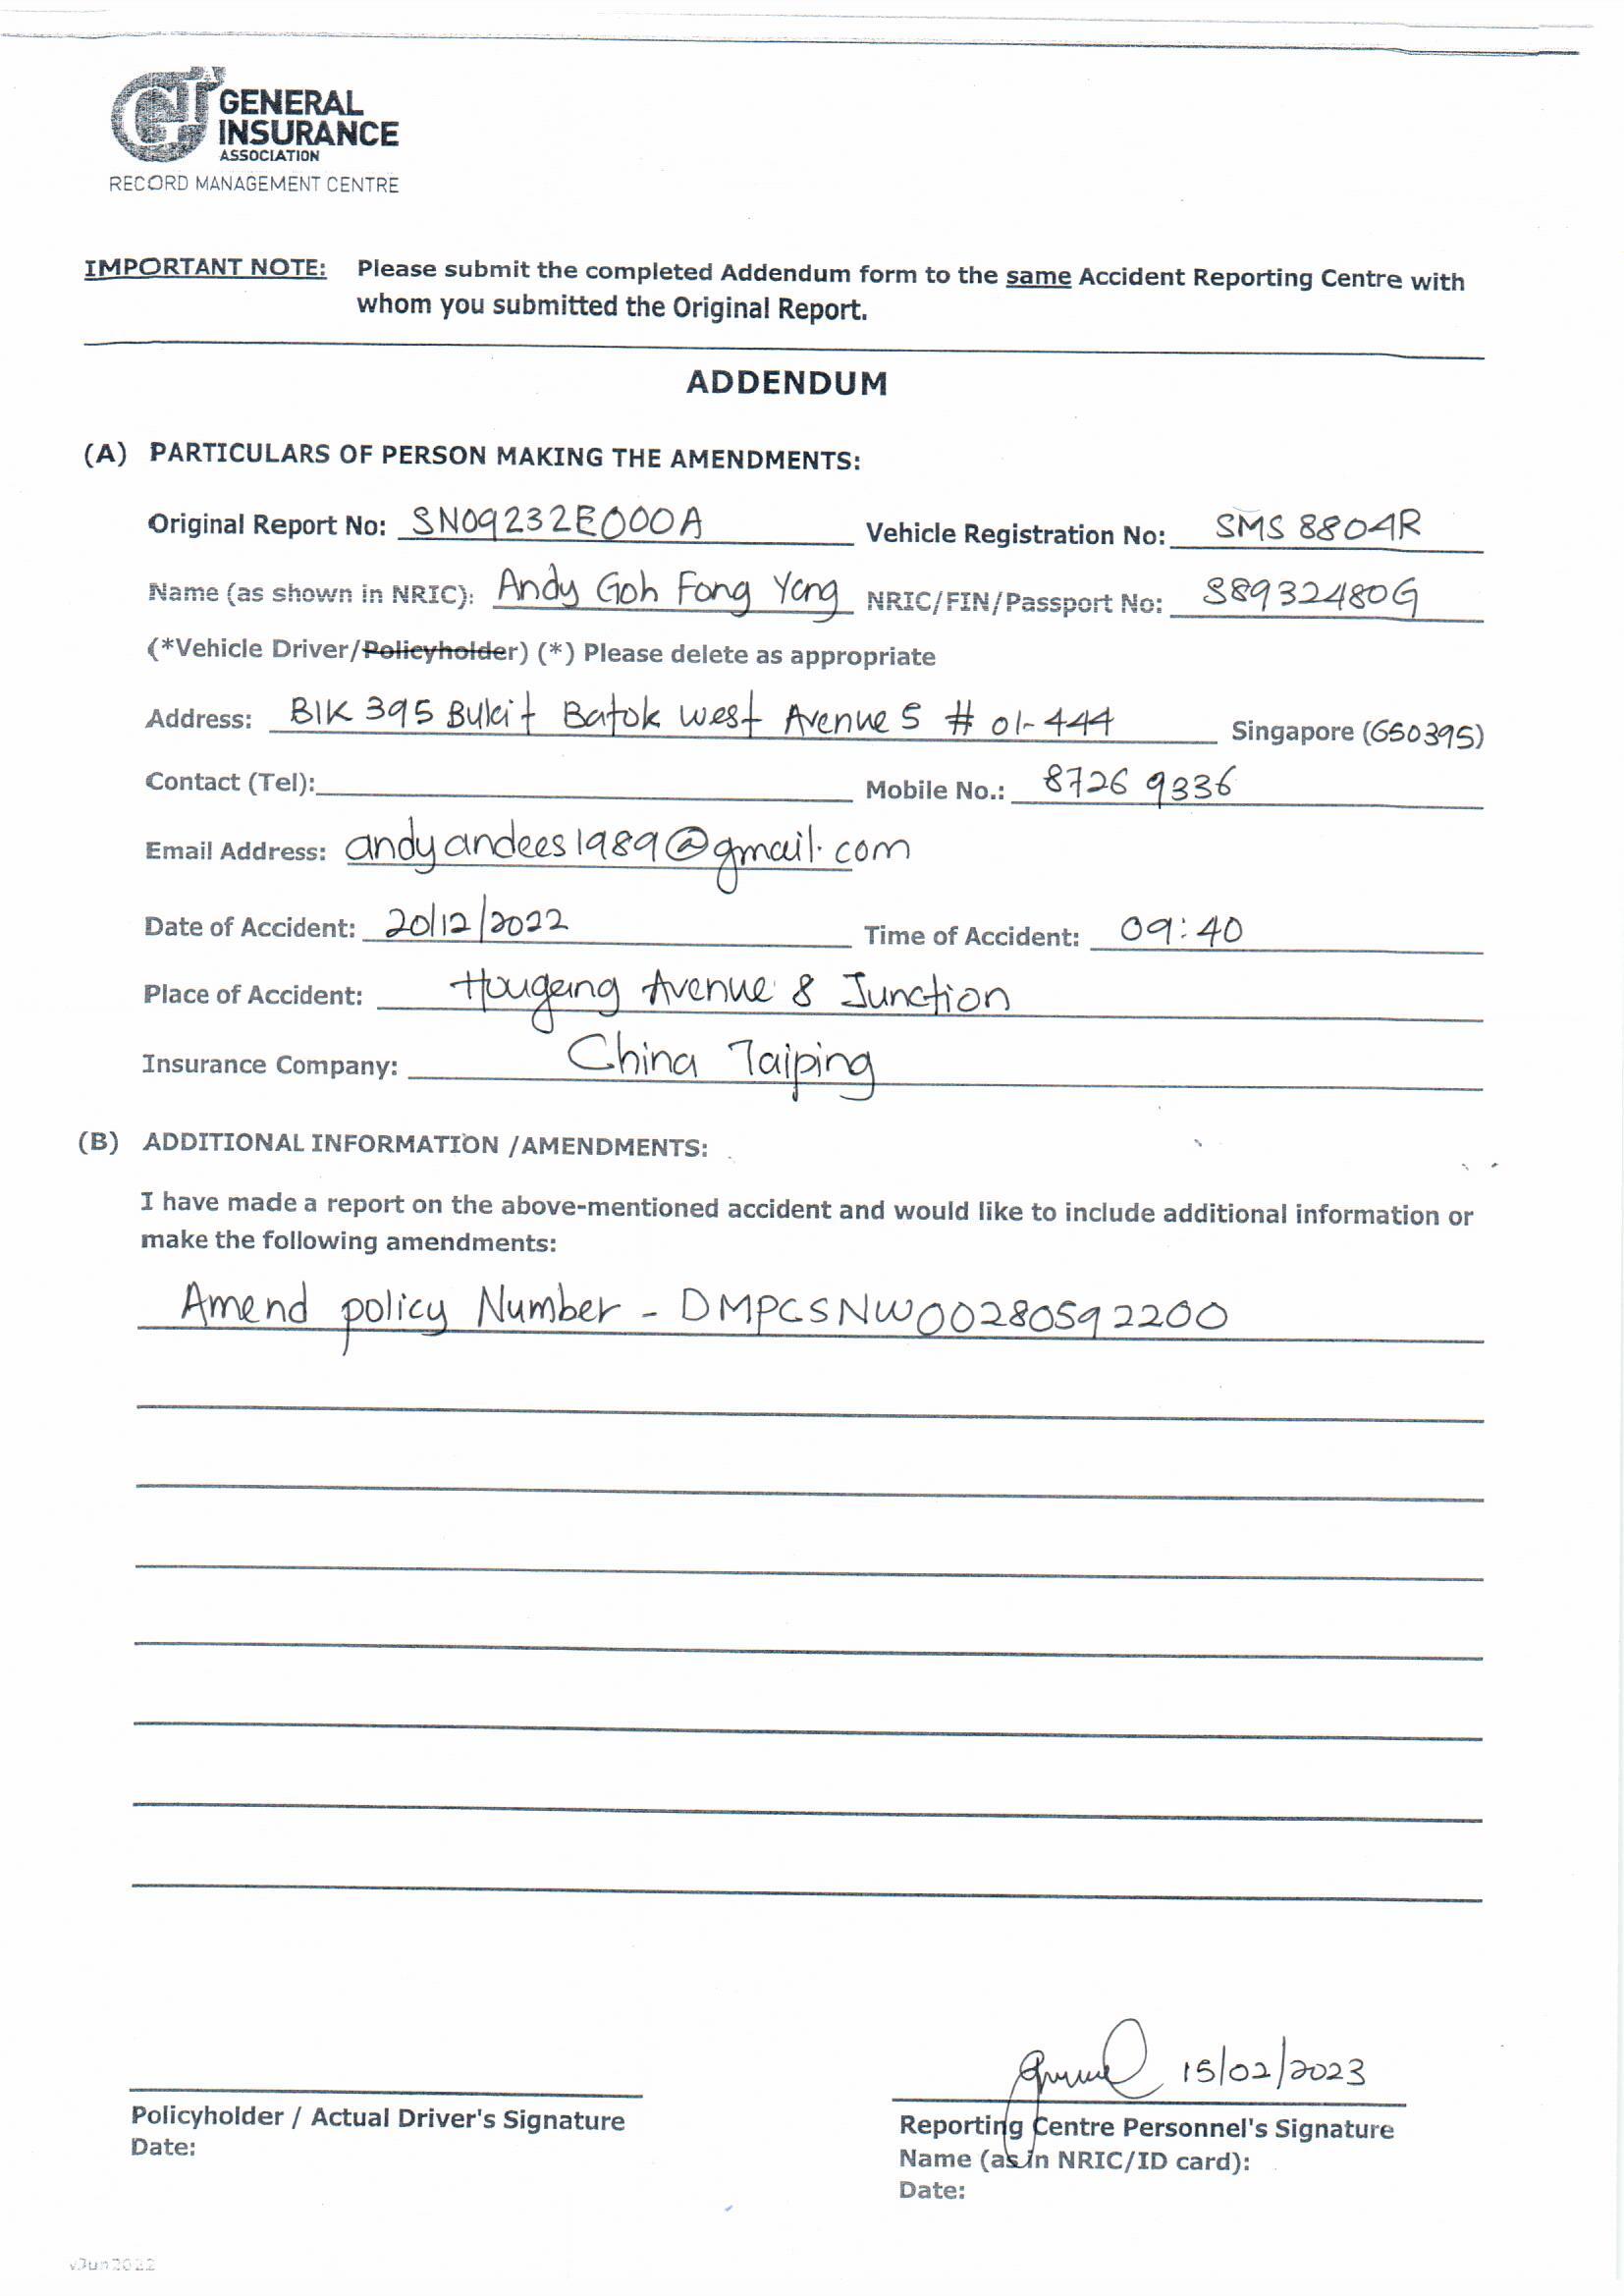 GIA GENERAL
INSURANCE
ASSOCIATION
RECORD MANAGEMENT CENTRE
IMPORTANT NOTE: Please submit the completed Addendum form to the same Accident Reporting Centre with
whom you submitted the Original Report.
ADDENDUM
(A) PARTICULARS OF PERSON MAKING THE AMENDMENTS:
Original Report No: SN09232E000A Vehicle Registration No: SMS 8804R
Name (as shown in NRIC): Andy Goh Fong Yang NRIC/FIN/Passport No: S8932480G
(*Vehicle Driver/Policyholder) (*) Please delete as appropriate
Address: Blk 395 Bukit Batok West Avenue 5 # 01-444 Singapore (650395)
Contact (Tel): Mobile No.: 8726 9336
Email Address: andyandees1989@gmail.com
Date of Accident: 20/12/2022 Time of Accident: 09:40
Place of Accident: Hougang Avenue 8 Junction
Insurance Company: China Taiping
(B) ADDITIONAL INFORMATION /AMENDMENTS:
I have made a report on the above-mentioned accident and would like to include additional information or
make the following amendments:
Amend policy Number - DMPCSNW00280592200
15/02/2023
Policyholder / Actual Driver's Signature Reporting Centre Personnel's Signature
Date: Name (as in NRIC/ID card):
Date:
vJun2022